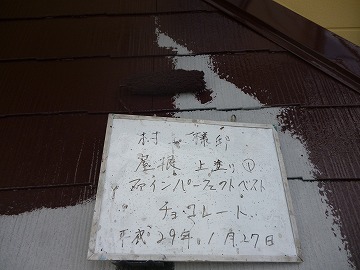 村上様邸
屋根 上塗り①
ファインパーフェクトベスト
チョコレート
平成29年1月27日